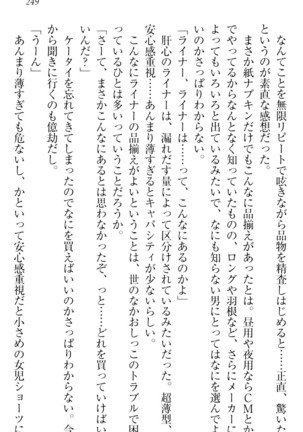 249
なんてことを無限リピートで呟きながら品物を精査しはじめると……正直、驚いた
というのが素直な感想だった。
まさか紙ナプキンだけでもこんなに品揃えがあったとは。昼用や夜用ならCMとか
でやってるからなんとなく知っていたものの、ロングや羽根など、さらにメーカーに
よってもいろいろと出ているみたいで、なにも知らない男にとってはなにを選んでよ
いのかさっぱりわからない。
「ライナー、ライナーって、こんなにあるのかよ」
肝心のライナーは、漏れだす量によって区分けされているみたいだった。超薄型、
安心感重視……あんまり薄すぎるとキャパシティが少ないらしい。
こんなにライナーの品揃えがよいということは、世のなかおしっこのトラブルで困
っているひとは多いっていうことだろうか。
「さーて、まさかこんなにあるとは思わなかったぞ、っと……どれを買っていけばい
いんだ？」
ケータイを忘れてきてしまったのでなにを買えばいいのかさっぱりわからない。だ
から聞きに行くのも億劫だし。
「うーん」
あんまり薄すぎても危ないし、かといって安心感重視だと小さめの女児ショーツに